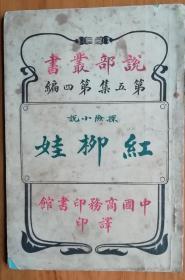 說部叢書
第五集第四編
探險小說
紅柳娃
中國商務印書館
譯印